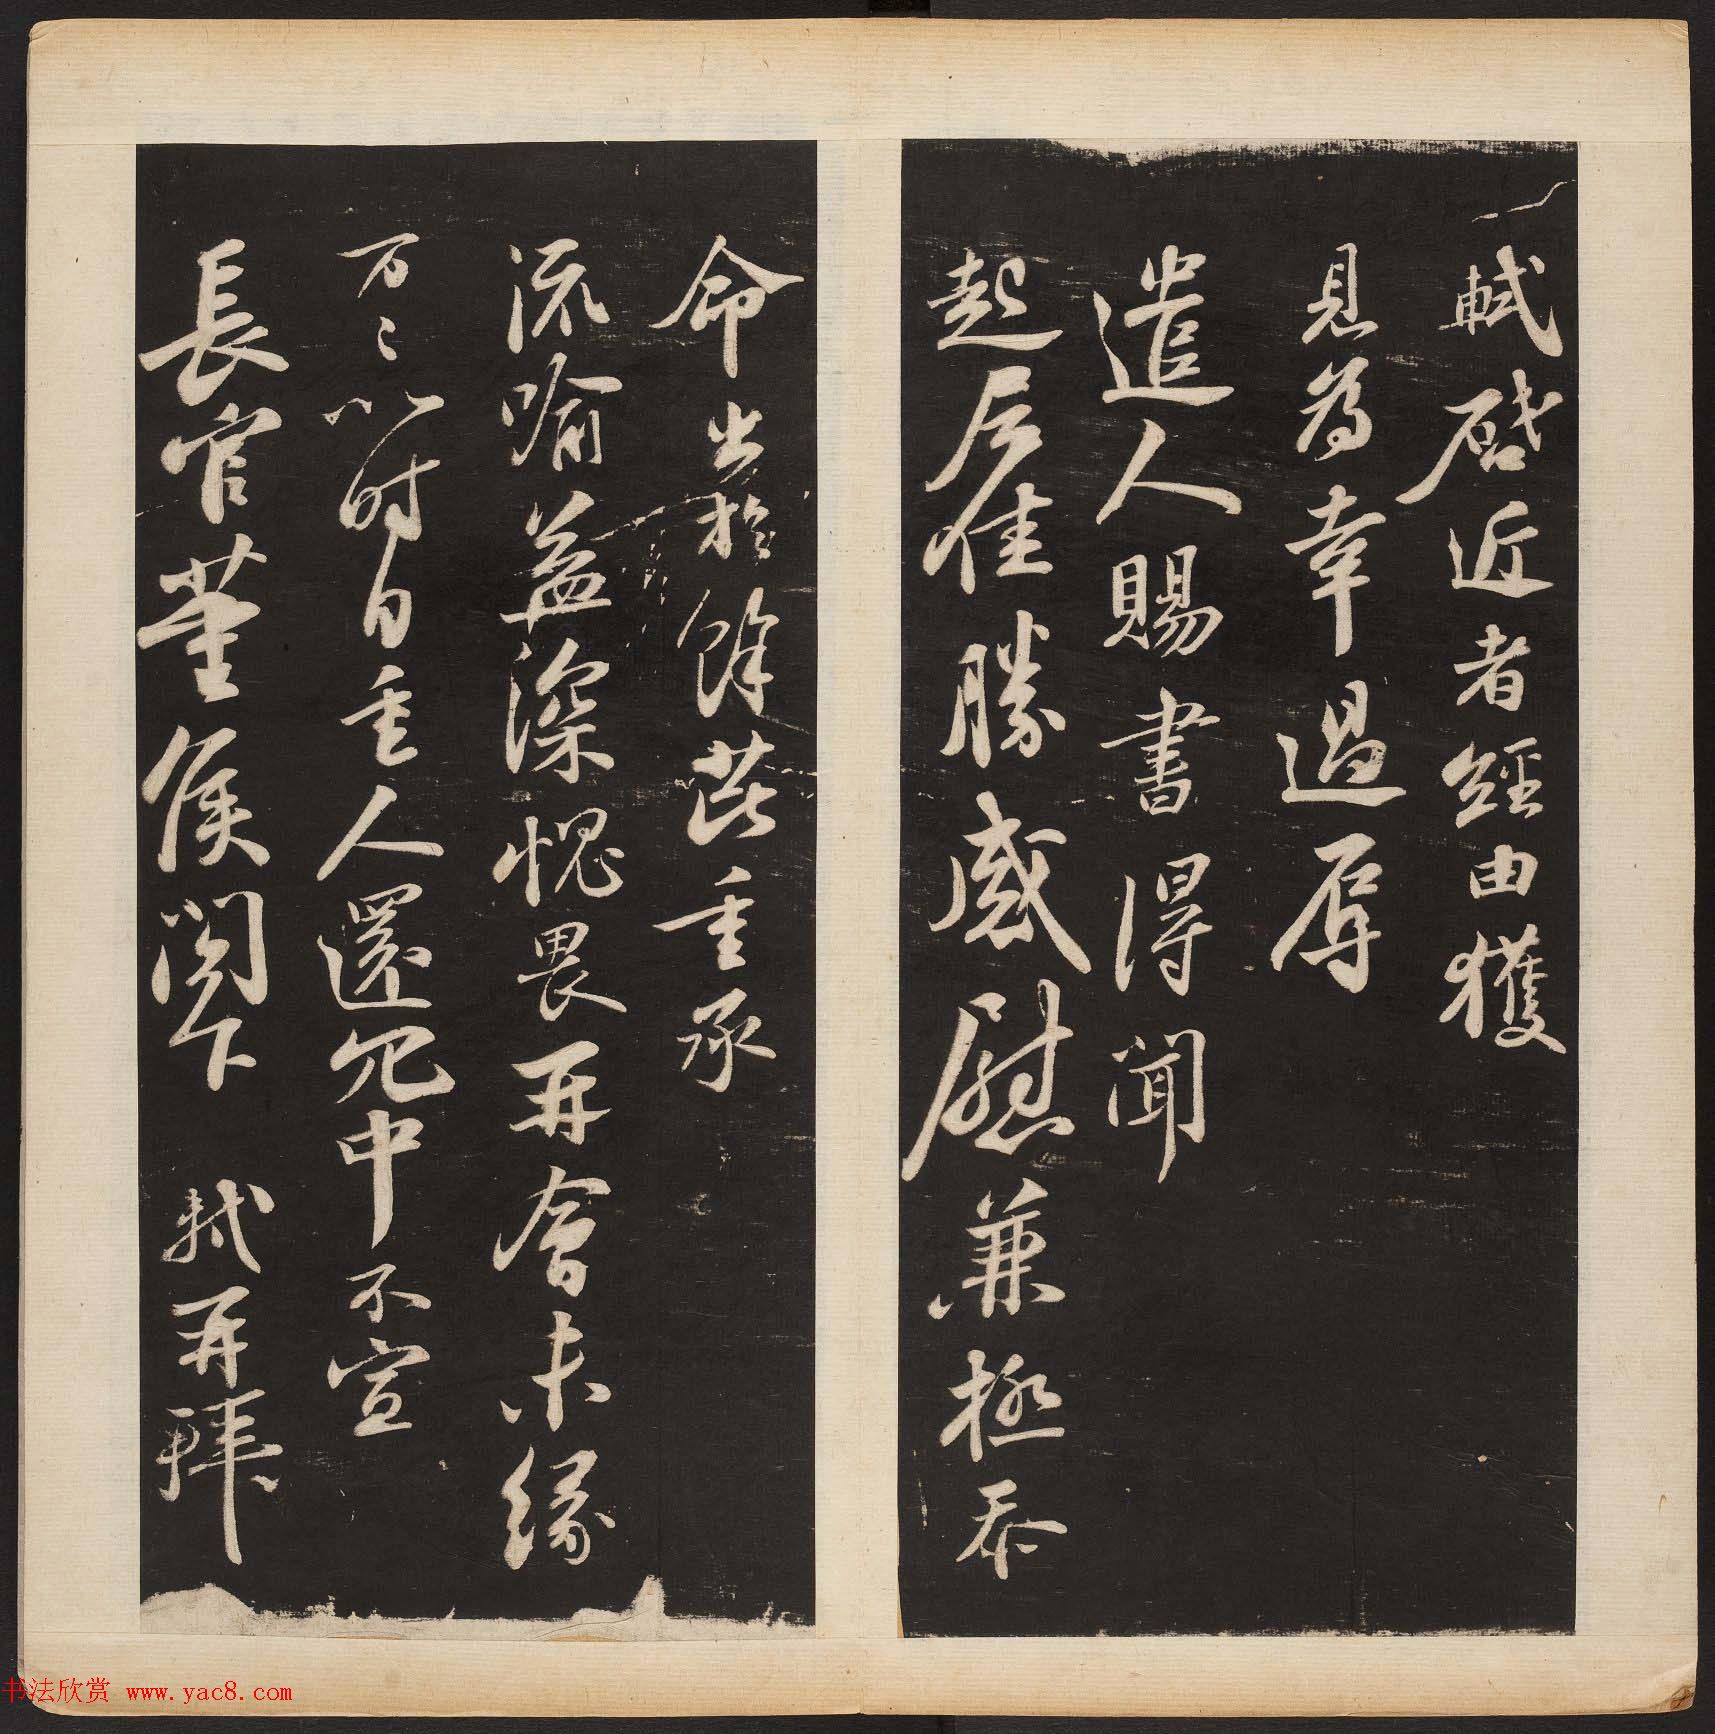 軾啓近者經由獲
見為幸過辱
遣人賜書得聞
起居佳勝感慰兼極忝
命出於餘芘重承
流喻益深愧畏再會未緣
万〻以時自重人還冗中不宣
長官董侯閣下 軾再拜
书法欣赏 www.yac8.com